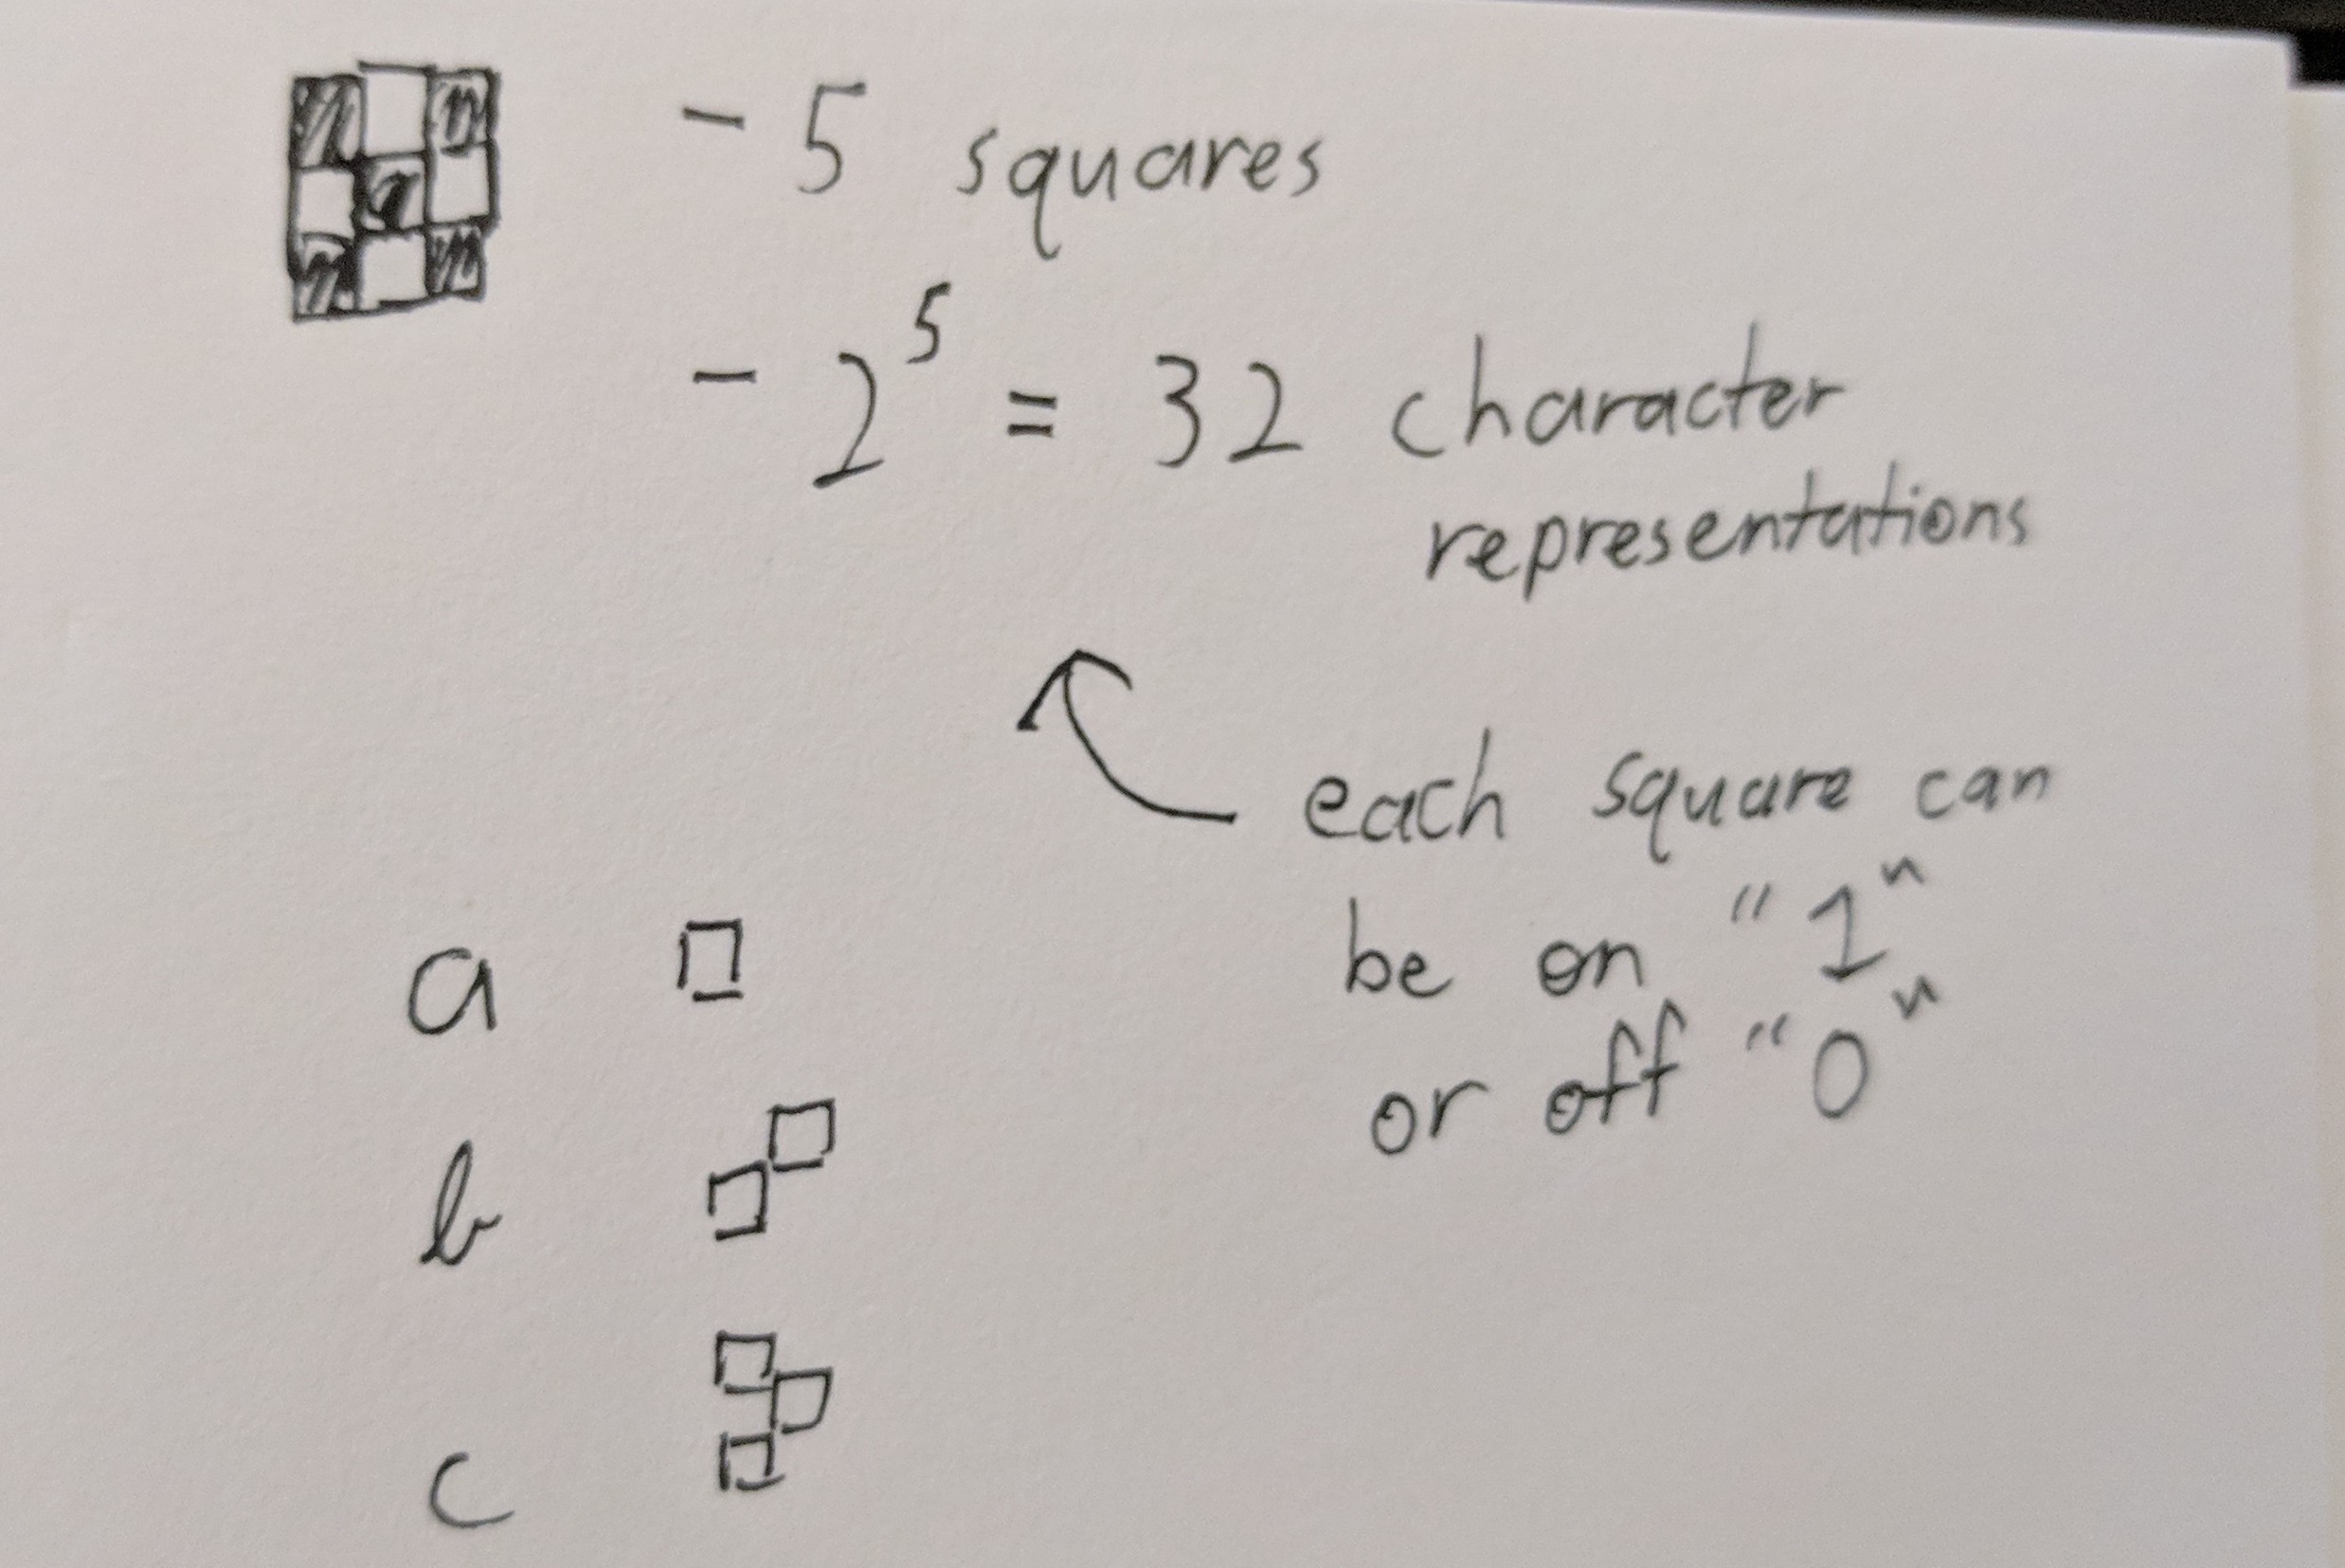 - 5 squares
- 2⁵ = 32 character
representations
each square can
be on "1"
or off "0"
a
b
c